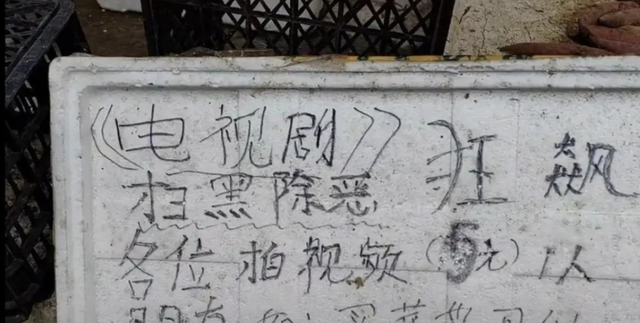 《电视剧》 狂 飙
扫黑除恶
各位拍视频（5元）1人
朋友 买菜